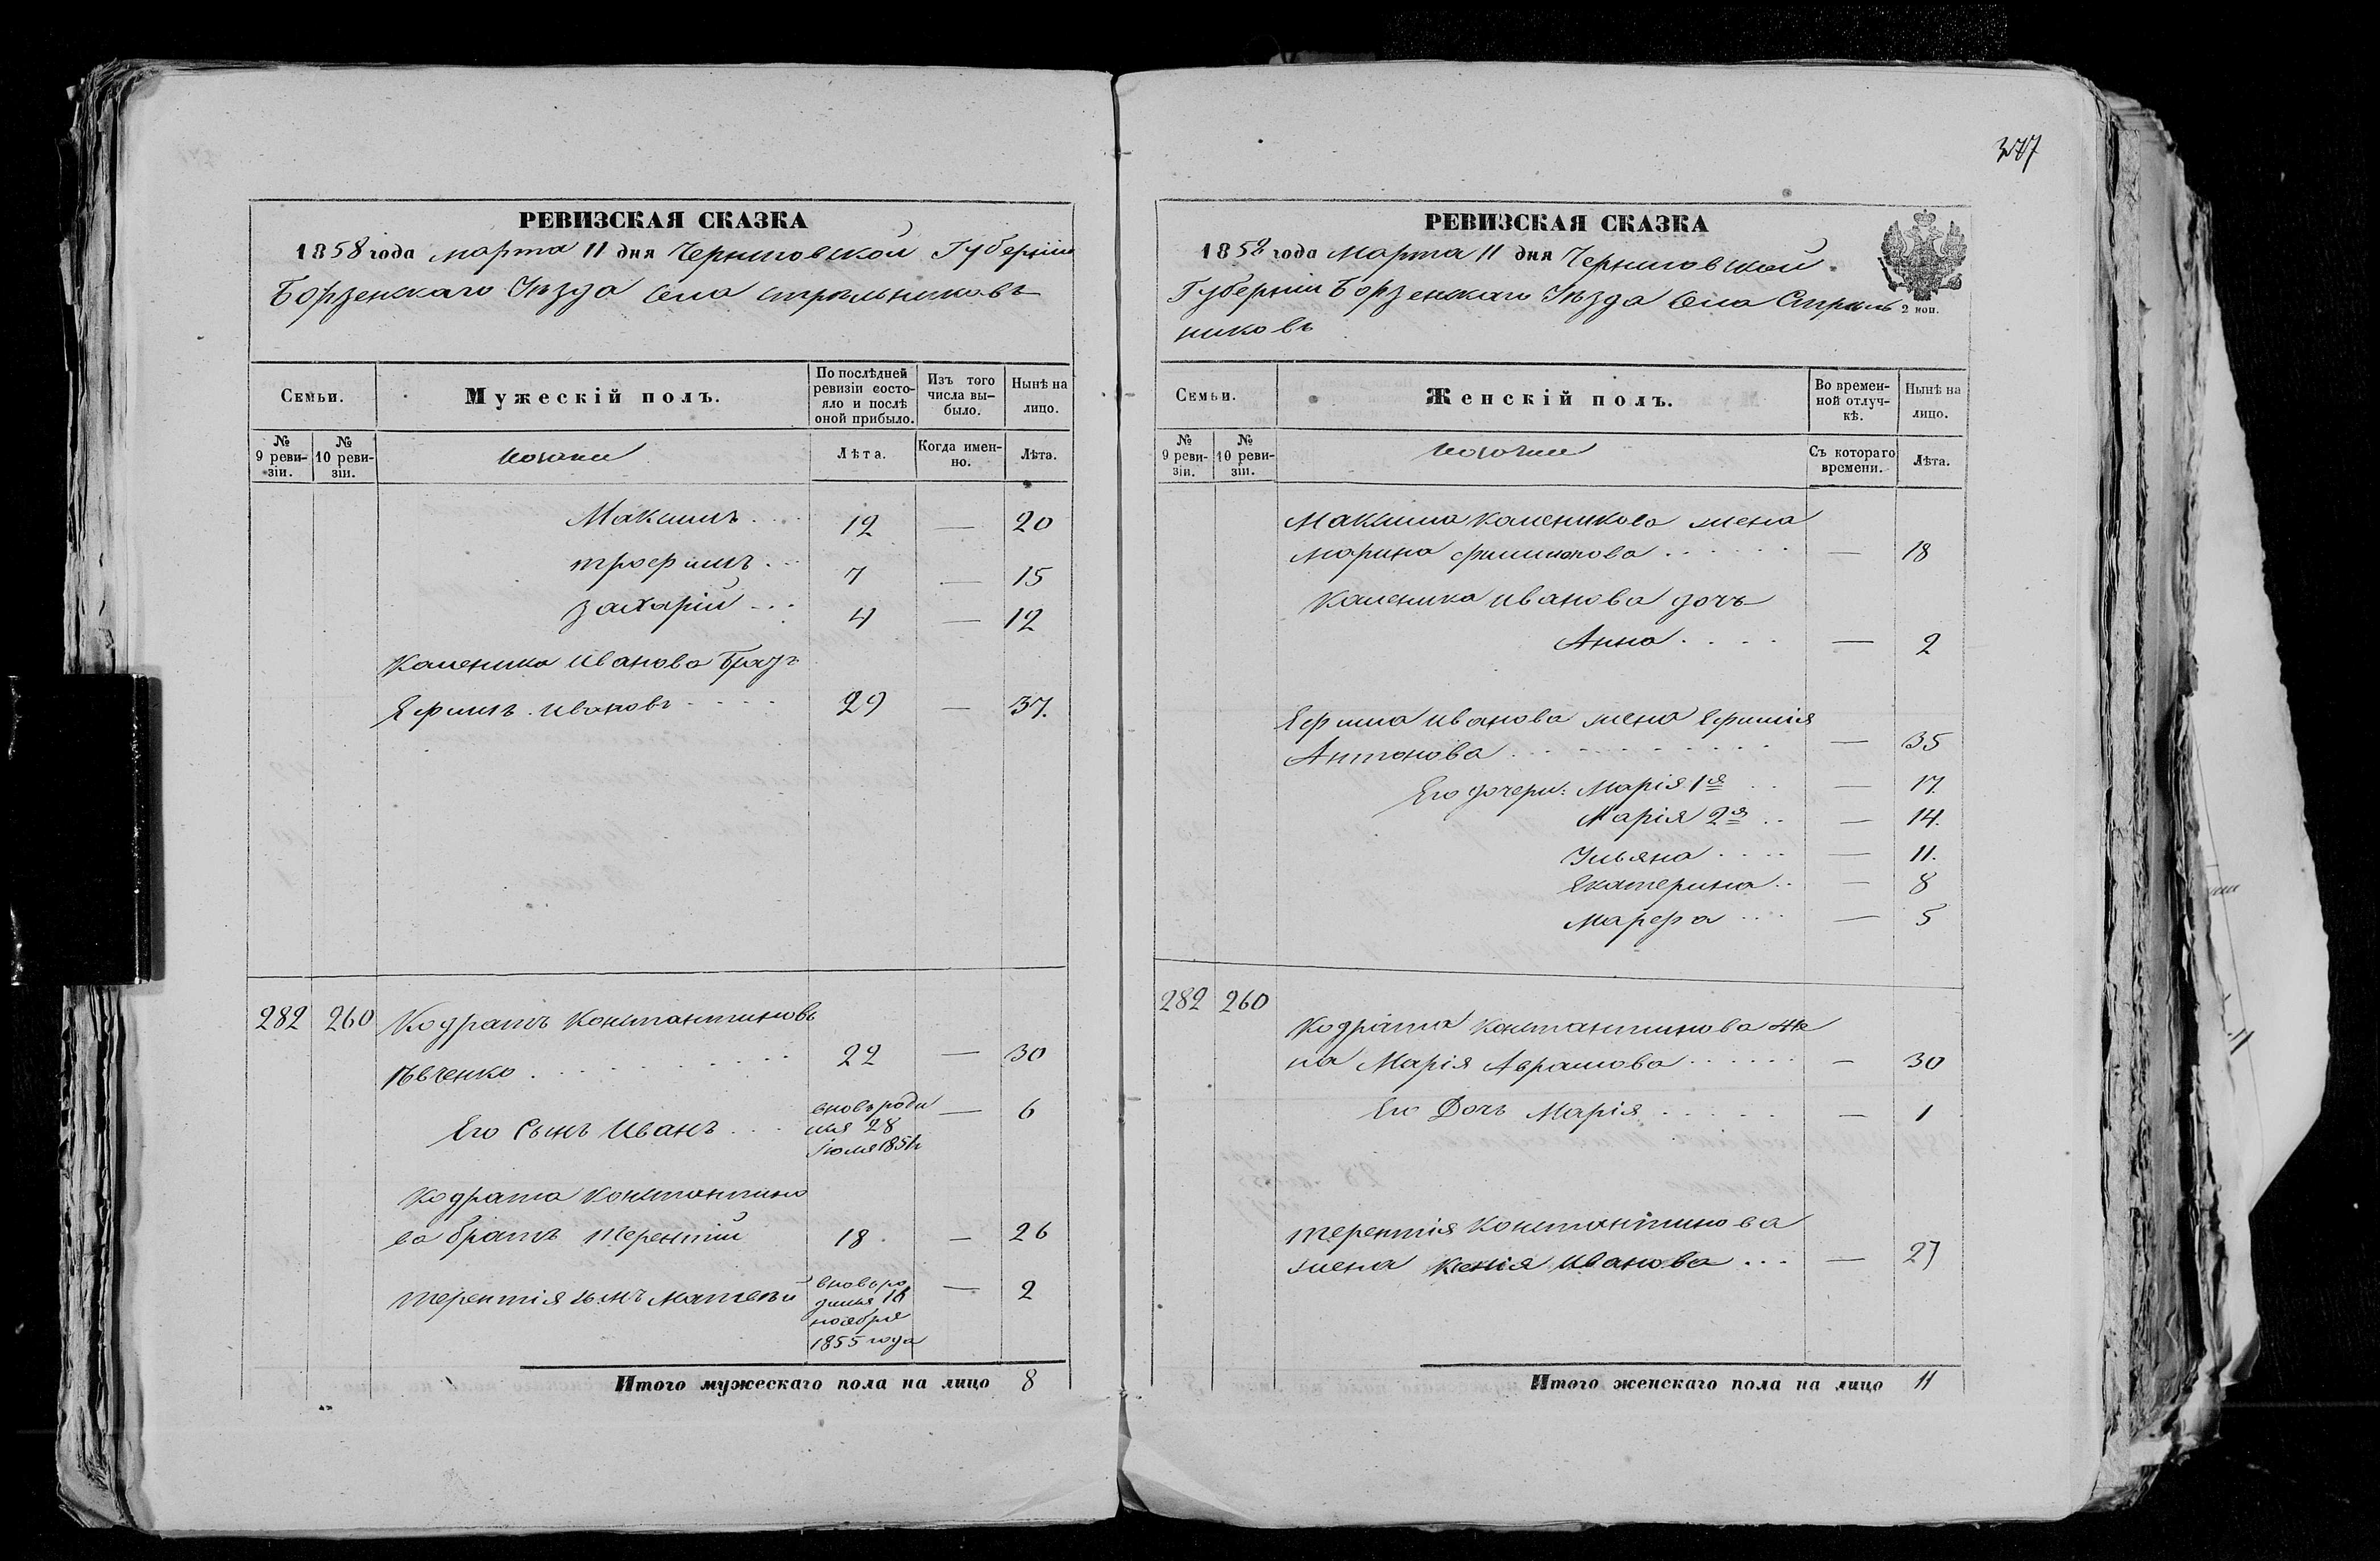 РЕВИЗСКАЯ СКАЗКА
1858 года марта 11 дня Черниговской Губерніи
Борзенскаго Уѣзда села Стрѣльниковъ
Семьи.
Мужескій полъ.
По послѣдней ревизіи состояло и послѣ оной прибыло.
Изъ того числа выбыло.
Нынѣ на лицо.
№ 9 ревизіи.
№ 10 ревизіи.
козаки
Лѣта.
Когда именно.
Лѣта.
Максимъ . . . 12 — 20
трофимъ . . . 7 — 15
захарій . . . 4 — 12
Каленика Иванова братъ
Ефимъ Ивановъ . . . . 29 — 37.
282 260 Кодратъ Константиновъ
Ивченко . . . . . 22 — 30
Его сынъ Иванъ . . . вновь роди
лся 28
Іюля 1851г — 6
Кодрата Константино
ва братъ Терентій 18 — 26
Терентія сынъ Матвѣй вновь ро
дился 16
ноября
1855 года — 2
Итого мужескаго пола на лицо 8
377
РЕВИЗСКАЯ СКАЗКА
1858 года Марта 11 дня Черниговской
Губерніи Борзенскаго Уѣзда села Стрѣль
никовъ
2 коп.
Семьи.
Женскій полъ.
Во временной отлучкѣ.
Нынѣ на лицо.
№ 9 ревизіи.
№ 10 ревизіи.
козачки
Съ котораго времени.
Лѣта.
Максима Каленикова жена
Марина Филимонова . . . . . . — 18
Каленика Иванова дочь
Анна . . . . — 2
Ефима Иванова жена Ефимія
Антонова . . . . . . . . — 35
Его дочери: Марія 1я . . — 17.
Марія 2я . . — 14.
Ульяна . . . . — 11.
Екатерина . . — 8
Марфа . . . . — 5
282 260
Кодрата Константинова же
на Марія Аврамова . . . . . . — 30
Его Дочь Марія . . . . . — 1
Терентія Константинова
жена Ксенія Иванова . . . — 27
Итого женскаго пола на лицо 11